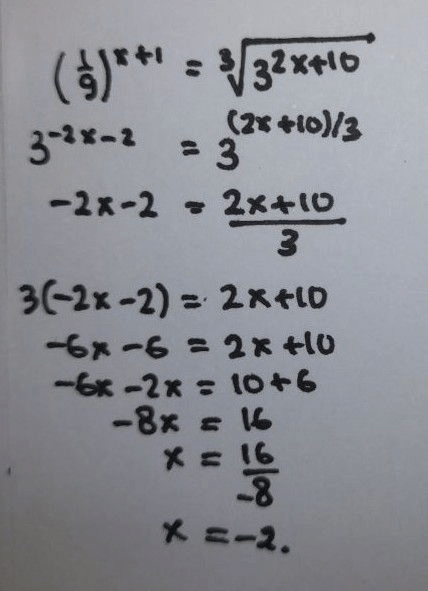 (1/9)^x+1 = ∛3^2x+10
3^-2x-2 = 3^(2x+10)/3
-2x-2 = 2x+10/3
3(-2x-2) = 2x+10
-6x-6 = 2x+10
-6x-2x = 10+6
-8x = 16
x = 16/-8
x = -2.